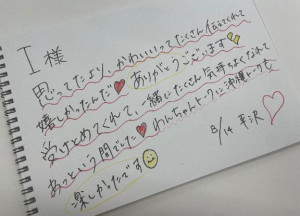 I様
思ってたより、かわいいってたくさん伝えてくれて
嬉しかったんだ ありがとうございます
受けとめてくれて、一緒にたくさん気持ちよくなれて
あっという間でした わんちゃんトークに沖縄トーク
楽しかったです
8/14 平沢